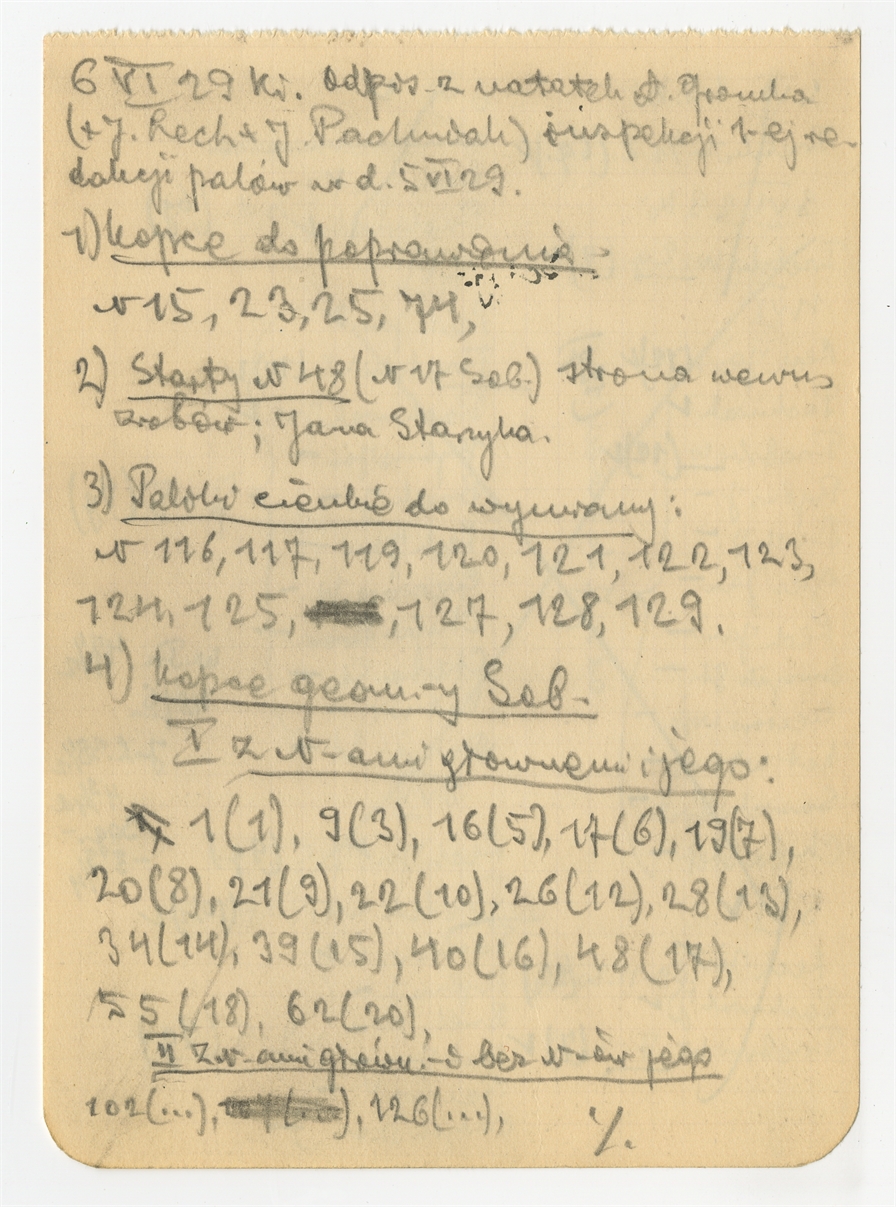 6 VI 29 Ki. Odpis z notatek St. Gromka
(+ J. Lech + J. Pachniak) inspekcji 1-ej re-
dakcji palów w d. 5 VI 29.
1) Kopce do poprawienia
N 15, 23, 25, 74,
2) Starty N 48 (N 17 Sob.) strona wewn
zrobów; Jana Staszyka.
3) Paliki cienkie do wymiany:
N 116, 117, 119, 120, 121, 122, 123,
124, 125, , 127, 128, 129.
4) Kopce geom-y Sob.
I z N-ami głównemi i jego:
1(1), 9(3), 16(5), 17(6), 19(7),
20(8), 21(9), 22(10), 26(12), 28(13),
34(14), 39(15), 40(16), 48(17),
55(18), 62(20),
II z N-ami główn.-i bez N-ów jego
102(...), , 126(...),
%.